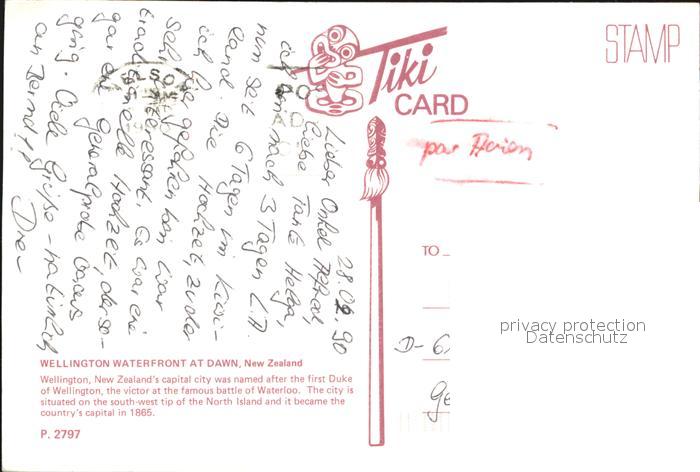 STAMP
Tiki
CARD
par Avion
28.02.90
Lieber Onkel Alfred,
liebe Tante Helga,
ich bin nach 3 Tagen L.A.
nun seit 6 Tagen im Kiwi-
land. Die Hochzeit, zu der
ich
sehr interessant. Es war eine
traditionelle Hochzeit, der so-
gar eine Generalprobe voraus
ging. Viele Grüße - natürlich
an
TO
D-6
ge
privacy protection
Datenschutz
WELLINGTON WATERFRONT AT DAWN, New Zealand
Wellington, New Zealand's capital city was named after the first Duke
of Wellington, the victor at the famous battle of Waterloo. The city is
situated on the south-west tip of the North Island and it became the
country's capital in 1865.
P. 2797